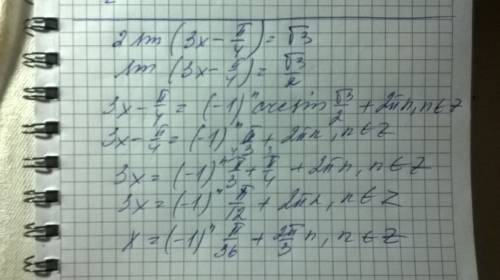 2 sin (3x - π/4) = √3
sin (3x - π/4) = √3/2
3x - π/4 = (-1)ⁿ arcsin √3/2 + 2πn, n∈Z
3x - π/4 = (-1)ⁿ π/3 + 2πn, n∈Z
3x = (-1)ⁿ π/3 + π/4 + 2πn, n∈Z
3x = (-1)ⁿ π/12 + 2πn, n∈Z
x = (-1)ⁿ π/36 + 2π/3 n, n∈Z